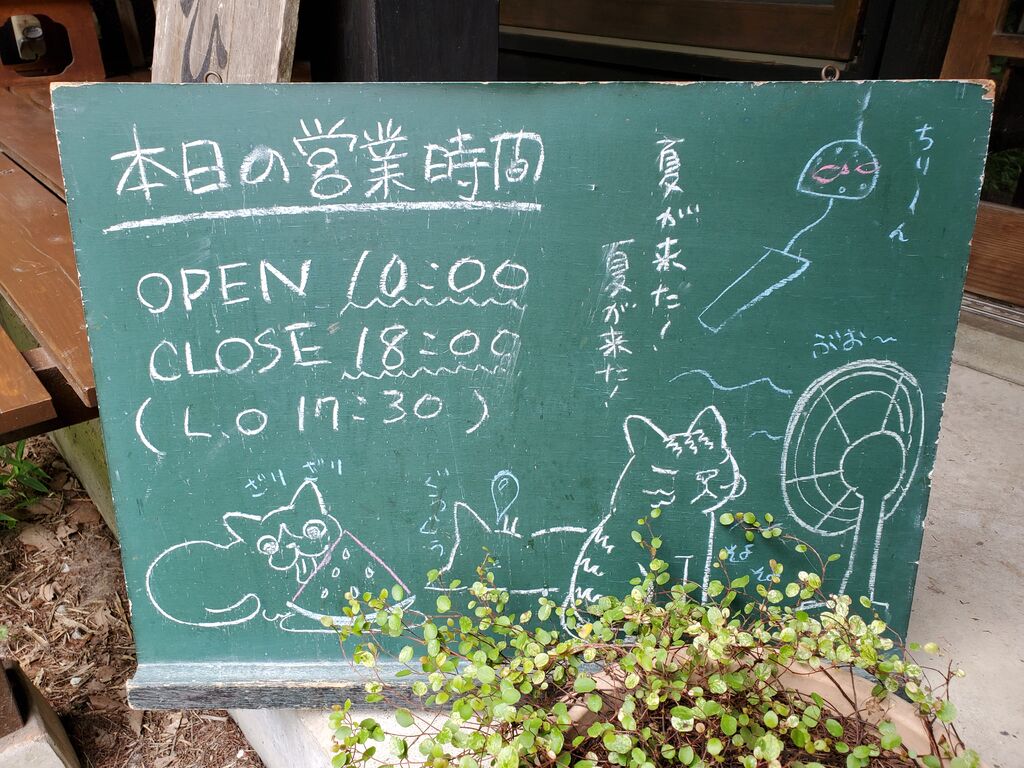 本日の営業時間
OPEN 10:00
CLOSE 18:00
(L.O 17:30)
夏が来た!
夏が来た!
ちりーん
ぶお〜
ざり
ざり
ぐぅぐぅ
そよ